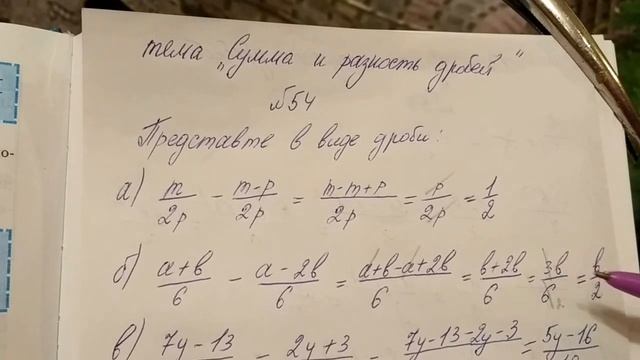 тема „Сумма и разность дробей"
№54
Представте в виде дроби:
а) m/2p - m-p/2p = m-m+p/2p = p/2p = 1/2
б) a+b/6 - a-2b/6 = a+b-a+2b/6 = b+2b/6 = 3b/6 = b/2
в) 7y-13 - 2y+3 = 7y-13-2y-3 = 5y-16